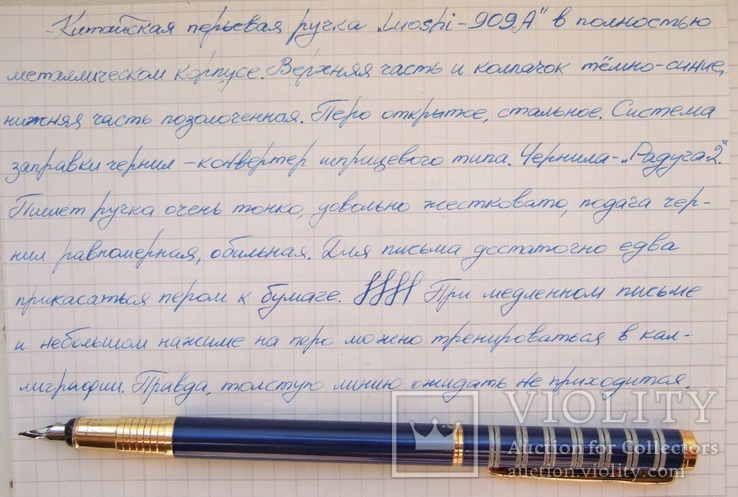 Китайская перьевая ручка „Luoshi-909A" в полностью
металлическом корпусе. Верхняя часть и колпачок тёмно-синие,
нижняя часть позолоченная. Перо открытое, стальное. Система
заправки чернил – конвертер шприцевого типа. Чернила - „Радуга-2".
Пишет ручка очень тонко, довольно жестковато, подача чер-
нил равномерная, обильная. Для письма достаточно едва
прикасаться пером к бумаге. При медленном письме
и небольшом нажиме на перо можно тренироваться в кал-
лиграфии. Правда, толстую линию ожидать не приходится.
VIOLITY
Auction for Collectors
auction.violity.com